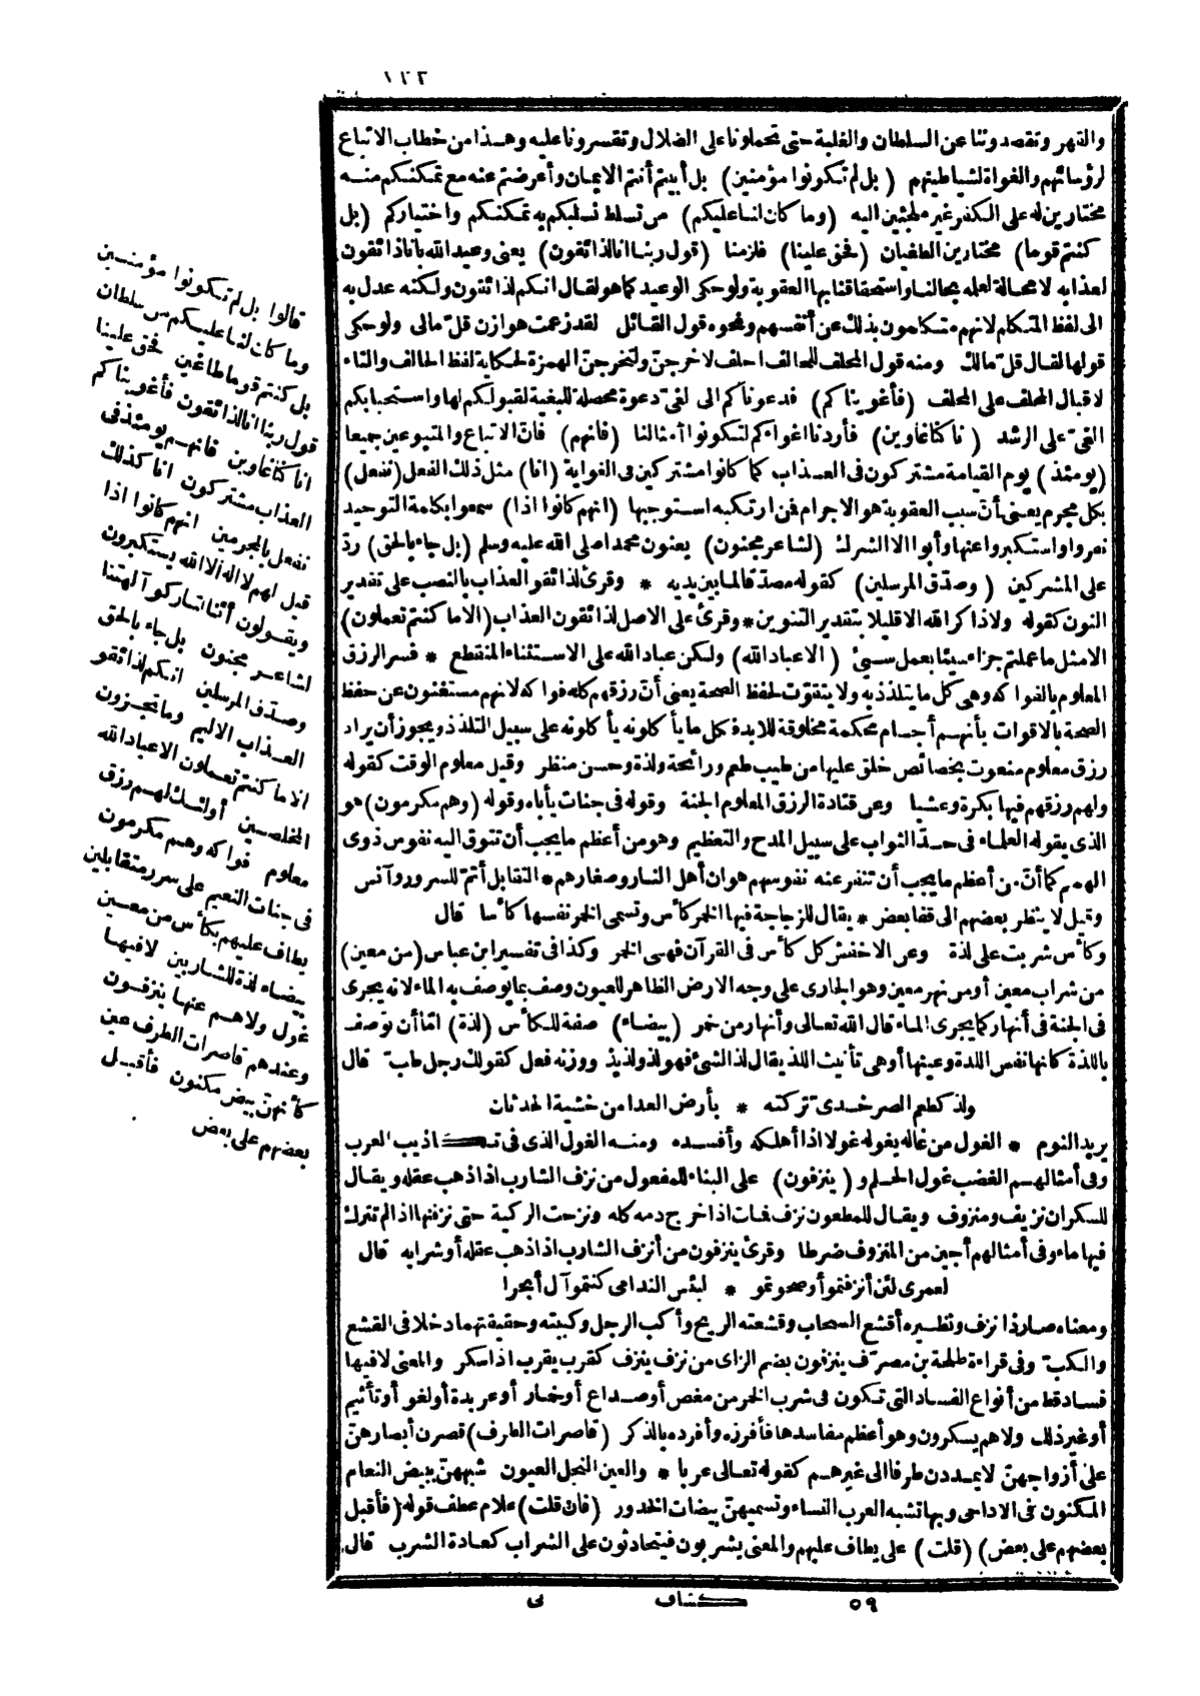 والقهر وتقصدوننا عن السلطان والغلبة حتى تحملونا على الضلال وتقسرونا عليه وهذا من خطاب الاتباع
لرؤسائهم والغواة لشياطينهم (بل لم تكونوا مؤمنين) بل أبيتم أنتم الايمان وأعرضتم عنه مع تمكنكم منه
مختارين له على الكفر غير ملجئين اليه (وما كان لنا عليكم) من تسلط نسلبكم به تمكنكم واختياركم (بل
كنتم قوما) مختارين الطغيان (فحق علينا) فلزمنا (قول ربنا انا لذائقون) يعنى وعيد الله بأنا ذائقون
لعذابه لا محالة لعلمه بحالنا واستحقاقنا بها العقوبة ولو حكى الوعيد كما هو لقال انكم لذائقون ولكنه عدل به
الى لفظ المتكلم لانهم متكلمون بذلك عن أنفسهم ونحوه قول القائل لقد زعمت هوازن قل مالى ولو حكى
قولها لقال قل مالك ومنه قول المحلف للحالف احلف لأخرجن ولتخرجن الهمزة لحكاية لفظ الحالف والتاء
لاقبال المحلف على المحلف (فأغويناكم) فدعوناكم الى الغى دعوة محصلة للبغية لقبولكم لها واستحبابكم
الغى على الرشد (انا كنا غاوين) فأردنا اغواءكم لتكونوا أمثالنا (فانهم) فان الاتباع والمتبوعين جميعا
(يومئذ) يوم القيامة مشتركون فى العذاب كما كانوا مشتركين فى الغواية (انا) مثل ذلك الفعل (نفعل)
بكل مجرم يعنى أن سبب العقوبة هو الاجرام فمن ارتكبه استوجبها (انهم كانوا اذا) سمعوا بكلمة التوحيد
نفروا واستكبروا عنها وأبوا الا الشرك (لشاعر مجنون) يعنون محمدا صلى الله عليه وسلم (بل جاء بالحق) رد
على المشركين (وصدق المرسلين) كقوله مصدقا لما بين يديه * وقرئ لذائقو العذاب بالنصب على تقدير
النون كقوله ولا ذاكر الله الا قليلا بتقدير التنوين * وقرئ على الاصل لذائقون العذاب (الا ما كنتم تعملون)
الا مثل ما عملتم جزاء سيئا بعمل سيئ (الا عباد الله) ولكن عباد الله على الاستثناء المنقطع * فسر الرزق
المعلوم بالفواكه وهى كل ما يتلذذ به ولا يتقوت لحفظ الصحة يعنى أن رزقهم كله فواكه لانهم مستغنون عن حفظ
الصحة بالاقوات بأنهم أجسام محكمة مخلوقة للابد فكل ما يأكلونه يأكلونه على سبيل التلذذ ويجوز أن يراد
رزق معلوم منعوت بخصائص خلق عليها من طيب طعم ورائحة ولذة وحسن منظر وقيل معلوم الوقت كقوله
ولهم رزقهم فيها بكرة وعشيا وعن قتادة الرزق المعلوم الجنة وقوله فى جنات يأباه وقوله (وهم مكرمون) هو
الذى يقوله العلماء فى حد الثواب على سبيل المدح والتعظيم وهو من أعظم ما يجب أن تتوق اليه نفوس ذوى
الهمم كما أن من أعظم ما يجب أن تنفر عنه نفوسهم هوان أهل النار وصغارهم * التقابل أتم للسرور وآنس
وقيل لا ينظر بعضهم الى قفا بعض * يقال للزجاجة فيها الخمر كأس وتسمى الخمر نفسها كأسا قال
وكأس شربت على لذة وعن الاخفش كل كأس فى القرآن فهى الخمر وكذا فى تفسير ابن عباس (من معين)
من شراب معين أو من نهر معين وهو الجارى على وجه الارض الظاهر للعيون وصف بما يوصف به الماء لانه يجرى
فى الجنة فى أنهار كما يجرى الماء قال الله تعالى وأنهار من خمر (بيضاء) صفة للكأس (لذة) اما أن توصف
باللذة كانها نفس اللذة وعينها أو هى تأنيث اللذ يقال لذ الشئ فهو لذ ولذيذ ووزنه فعل كقولك رجل طب قال
ولذ كطعم الصرخدى تركته * بأرض العدا من خشية الحدثان
يريد النوم * الغول من غاله يغوله غولا اذا أهلكه وأفسده ومنه الغول الذى فى تكاذيب العرب
وفى أمثالهم الغضب غول الحلم و (ينزفون) على البناء للمفعول من نزف الشارب اذا ذهب عقله ويقال
للسكران نزيف ومنزوف ويقال للمطعون نزف فمات اذا خرج دمه كله ونزحت الركية حتى نزفتها اذا لم تترك
فيها ماء وفى أمثالهم أجبن من المنزوف ضرطا وقرئ ينزفون من أنزف الشارب اذا ذهب عقله أو شرابه قال
لعمرى لئن أنزفتمو أو صحوتمو * لبئس الندامى كنتمو آل أبجرا
ومعناه صار ذا نزف ونظيره أقشع السحاب وقشعته الريح وأكب الرجل وكببته وحقيقتهما دخلا فى القشع
والكب وفى قراءة طلحة بن مصرف ينزفون بضم الزاى من نزف ينزف كقرب يقرب اذا سكر والمعنى لا فيها
فساد قط من أنواع الفساد التى تكون فى شرب الخمر من مغص أو صداع أو خمار أو عربدة أو لغو أو تأثيم
أو غير ذلك ولا هم يسكرون وهو أعظم مفاسدها فأفرزه وأفرده بالذكر (قاصرات الطرف) قصرن أبصارهن
على أزواجهن لا يمددن طرفا الى غيرهم كقوله تعالى عربا * والعين النجل العيون شبههن ببيض النعام
المكنون فى الاداحى وبها تشبه العرب النساء وتسميهن بيضات الخدور (فان قلت) علام عطف قوله (فأقبل
بعضهم على بعض) (قلت) على يطاف عليهم والمعنى يشربون فيتحادثون على الشراب كعادة الشرب قال
قالوا بل لم تكونوا مؤمنين
وما كان لنا عليكم من سلطان
بل كنتم قوما طاغين فحق علينا
قول ربنا انا لذائقون فأغويناكم
انا كنا غاوين فانهم يومئذ فى
العذاب مشتركون انا كذلك
نفعل بالمجرمين انهم كانوا اذا
قيل لهم لا اله الا الله يستكبرون
ويقولون أئنا لتاركوا آلهتنا
لشاعر مجنون بل جاء بالحق
وصدق المرسلين انكم لذائقو
العذاب الاليم وما تجزون
الا ما كنتم تعملون الا عباد الله
المخلصين أولئك لهم رزق
معلوم فواكه وهم مكرمون
فى جنات النعيم على سرر متقابلين
يطاف عليهم بكأس من معين
بيضاء لذة للشاربين لا فيها
غول ولا هم عنها ينزفون
وعندهم قاصرات الطرف عين
كأنهن بيض مكنون فأقبل
بعضهم على بعض
٥٩ كشاف نى